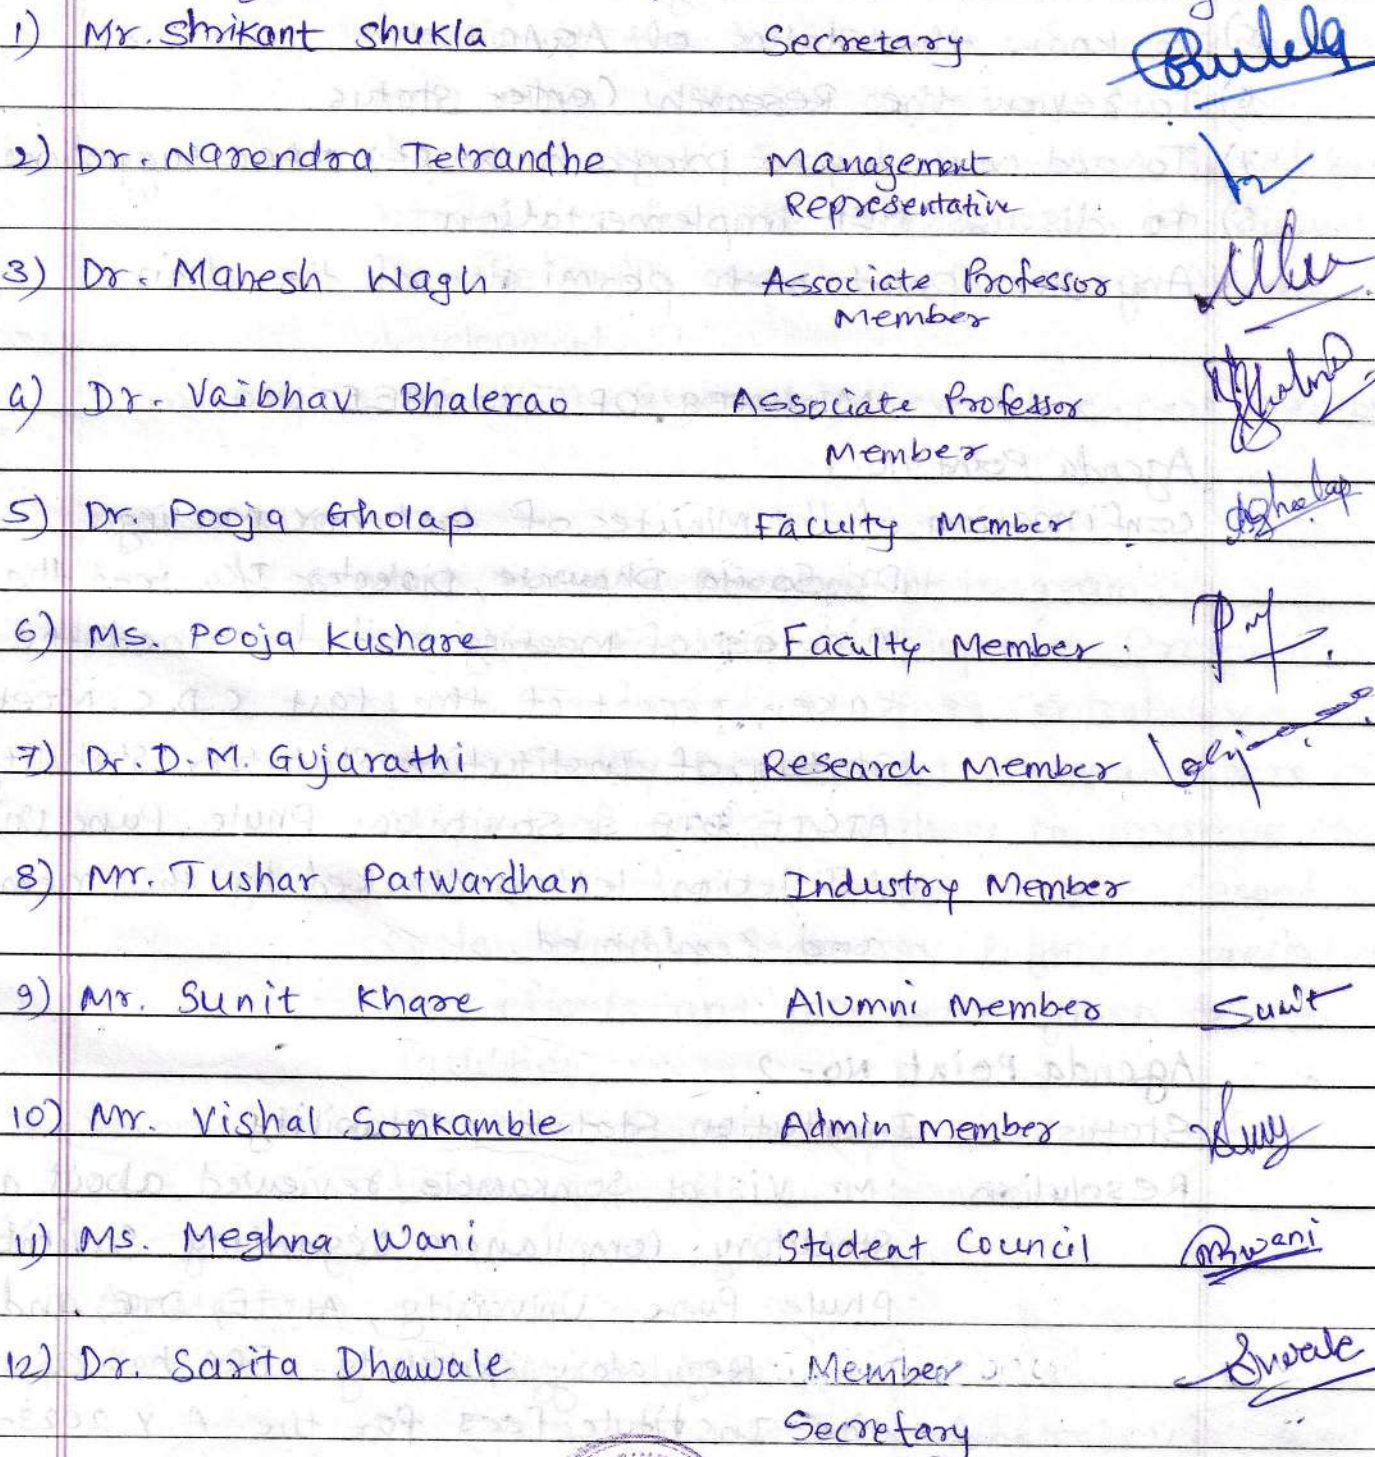 1) Mr. Shrikant Shukla Secretary
2) Dr. Narendra Tetrandhe Management
Representative
3) Dr. Mahesh Wagh Associate Professor
Member
4) Dr. Vaibhav Bhalerao Associate Professor
Member
5) Dr. Pooja Gholap Faculty Member
6) Ms. Pooja Kushare Faculty Member
7) Dr. D.M. Gujarathi Research Member
8) Mr. Tushar Patwardhan Industry Member
9) Mr. Sunit Khare Alumni Member Sunit
10) Mr. Vishal Sonkamble Admin Member
11) Ms. Meghna Wani Student Council
12) Dr. Sarita Dhawale Member
Secretary